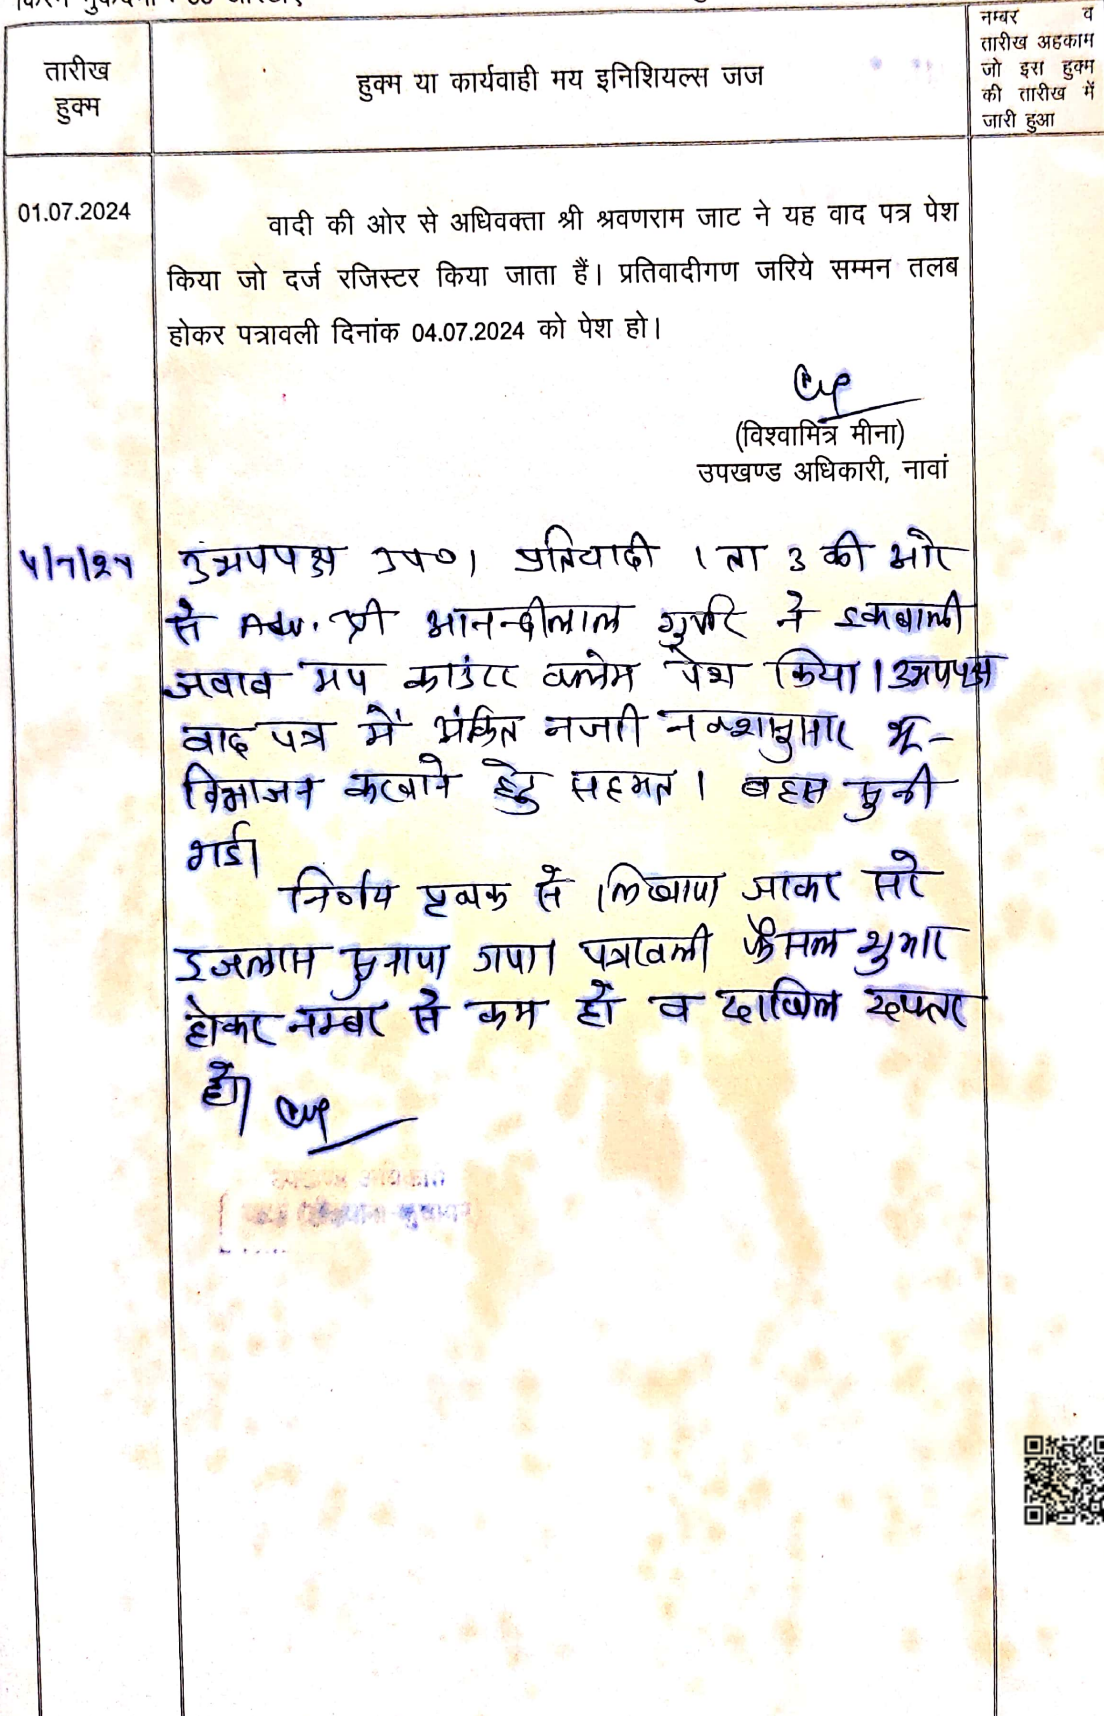 तारीख
हुक्म
हुक्म या कार्यवाही मय इनिशियल्स जज
नम्बर व
तारीख अहकाम
जो इस हुक्म
की तारीख में
जारी हुआ
01.07.2024
वादी की ओर से अधिवक्ता श्री श्रवणराम जाट ने यह वाद पत्र पेश
किया जो दर्ज रजिस्टर किया जाता हैं। प्रतिवादीगण जरिये सम्मन तलब
होकर पत्रावली दिनांक 04.07.2024 को पेश हो।
(विश्वामित्र मीना)
उपखण्ड अधिकारी, नावां
4/7/24
उभयपक्ष उप०। प्रतिवादी 1 ता 3 की ओर
से Adv. श्री आनन्दीलाल गुर्जर ने इकबाली
जवाब मय काउंटर क्लेम पेश किया। उभयपक्ष
वाद पत्र में अंकित नजरी नक्शानुसार भू-
विभाजन करवाने हेतु सहमत। बहस सुनी
गई।
निर्णय पृथक से लिखाया जाकर सरे
इजलास सुनाया गया। पत्रावली फैसल शुमार
होकर नम्बर से कम हो व दाखिल दफ्तर
हो।
उपखण्ड अधिकारी